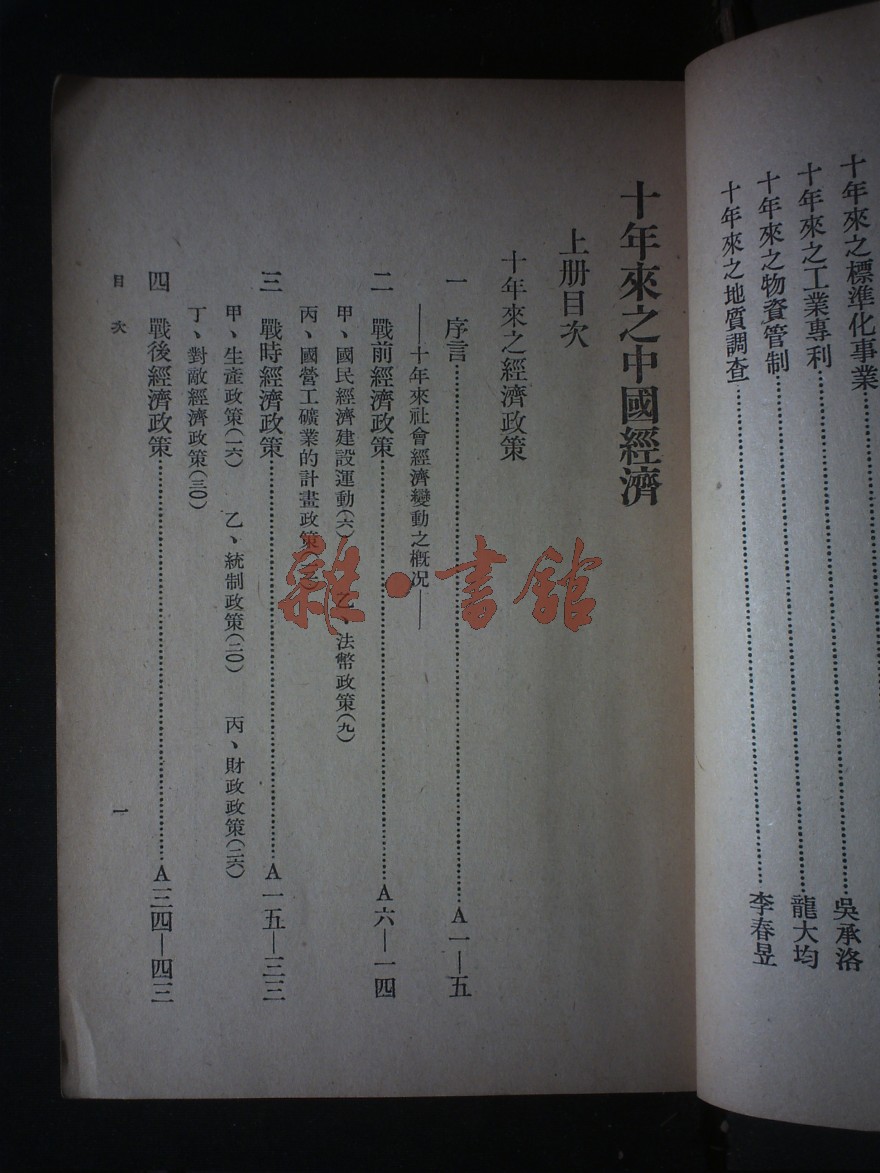 十年來之標準化事業……
十年來之工業專利……吳承洛
十年來之物資管制……龍大均
十年來之地質調查……李春昱
十年來之中國經濟
上册目次
十年來之經濟政策
一 序言……A一—五
——十年來社會經濟變動之概況——
二 戰前經濟政策……A六—一四
甲、國民經濟建設運動(六) 乙、法幣政策(九)
丙、國營工礦業的計畫政策
三 戰時經濟政策……A一五—三三
甲、生產政策(一六) 乙、統制政策(二〇) 丙、財政政策(二六)
丁、對敵經濟政策(三〇)
四 戰後經濟政策……A三四—四三
目次 一
雜·書館